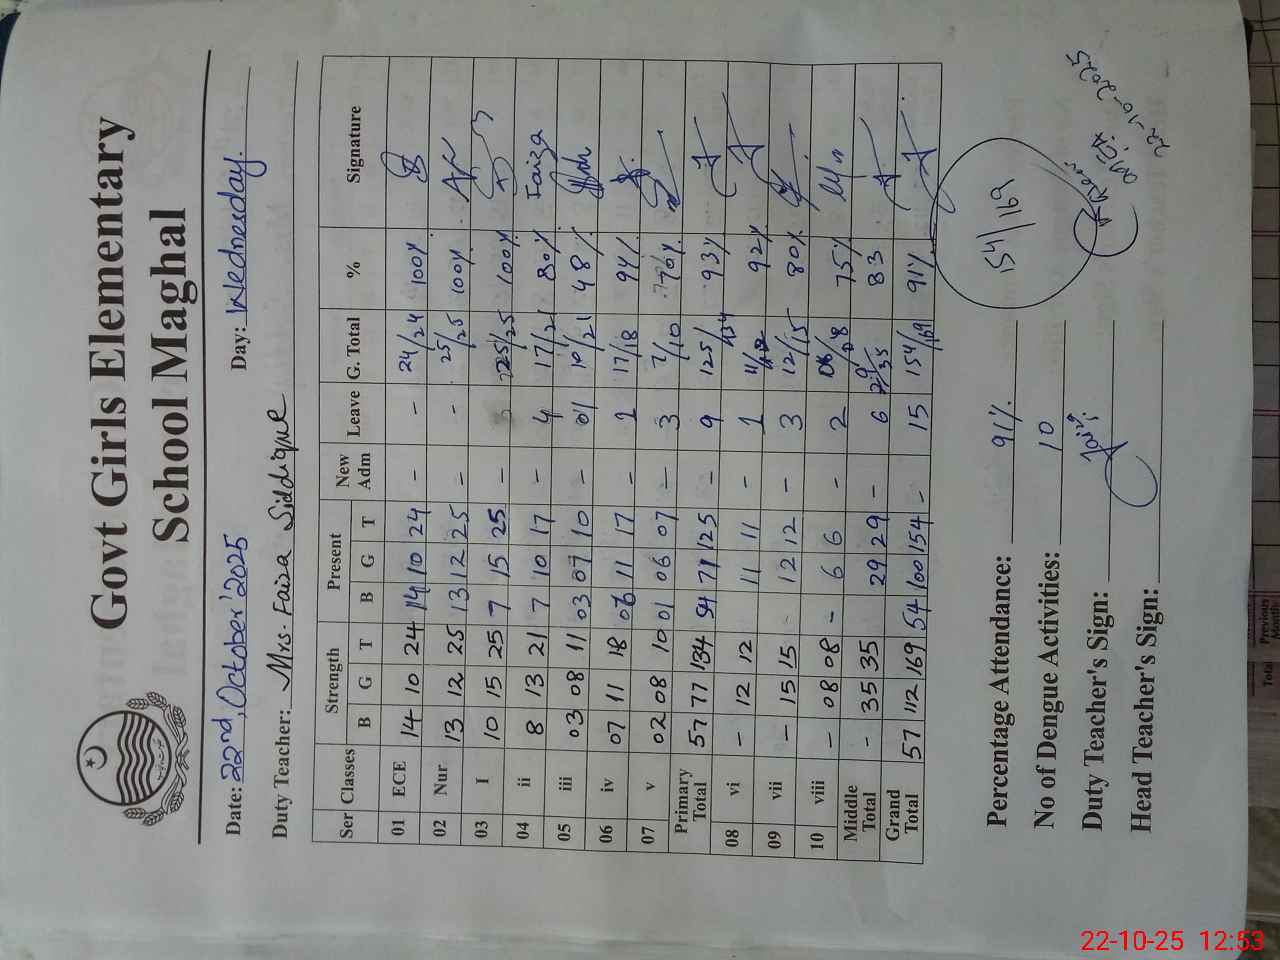 Govt Girls Elementary
School Maghal
Date: 22nd, October' 2025 Day: Wednesday.
Duty Teacher: Mrs. Faiza Siddique
Ser Classes Strength Present New Adm Leave G. Total % Signature
B G T B G T
01 ECE 14 10 24 14 10 24 - - 24/24 100%
02 Nur 13 12 25 13 12 25 - - 25/25 100%
03 I 10 15 25 7 15 25 - 25/25 100%
04 ii 8 13 21 7 10 17 - 4 17/21 80% Faiza
05 iii 03 08 11 03 07 10 - 01 10/21 48%
06 iv 07 11 18 06 11 17 - 1 17/18 94%
07 v 02 08 10 01 06 07 - 3 7/10 70%
Primary Total 57 77 134 54 71 125 - 9 125/134 93%
08 vi - 12 12 11 11 - 1 11/12 92%
09 vii - 15 15 - 12 12 - 3 12/15 80%
10 viii - 08 08 - 6 6 - 2 06/08 75%
Middle Total - 35 35 29 29 - 6 29/35 83
Grand Total 57 112 169 54 100 154 - 15 154/169 91%
154/169
Percentage Attendance: 91%
No of Dengue Activities: 10
Duty Teacher's Sign: Faiza
Head Teacher's Sign:
22-10-2025
Total Previous
22-10-25 12:53